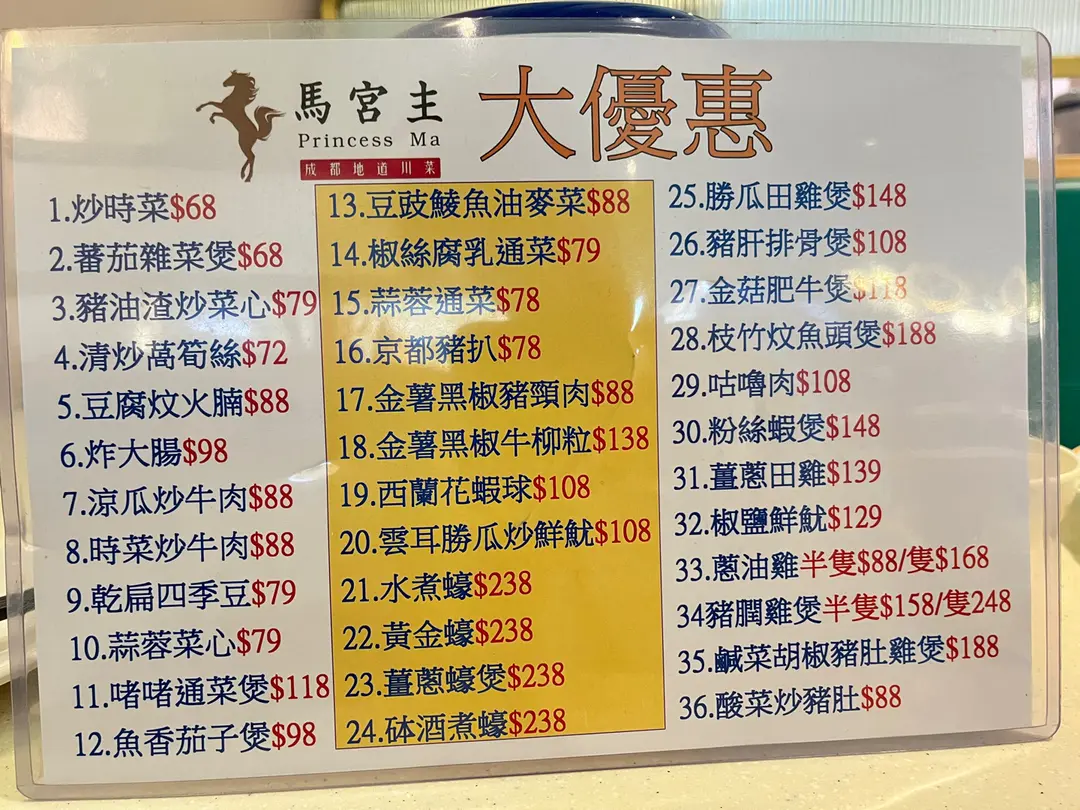 馬宮主
Princess Ma
成都地道川菜
大優惠
1.炒時菜$68
2.蕃茄雜菜煲$68
3.豬油渣炒菜心$79
4.清炒萵筍絲$72
5.豆腐炆火腩$88
6.炸大腸$98
7.涼瓜炒牛肉$88
8.時菜炒牛肉$88
9.乾扁四季豆$79
10.蒜蓉菜心$79
11.啫啫通菜煲$118
12.魚香茄子煲$98
13.豆豉鯪魚油麥菜$88
14.椒絲腐乳通菜$79
15.蒜蓉通菜$78
16.京都豬扒$78
17.金薯黑椒豬頸肉$88
18.金薯黑椒牛柳粒$138
19.西蘭花蝦球$108
20.雲耳勝瓜炒鮮魷$108
21.水煮蠔$238
22.黃金蠔$238
23.薑蔥蠔煲$238
24.砵酒煮蠔$238
25.勝瓜田雞煲$148
26.豬肝排骨煲$108
27.金菇肥牛煲$118
28.枝竹炆魚頭煲$188
29.咕嚕肉$108
30.粉絲蝦煲$148
31.薑蔥田雞$139
32.椒鹽鮮魷$129
33.蔥油雞半隻$88/隻$168
34豬膶雞煲半隻$158/隻248
35.鹹菜胡椒豬肚雞煲$188
36.酸菜炒豬肚$88